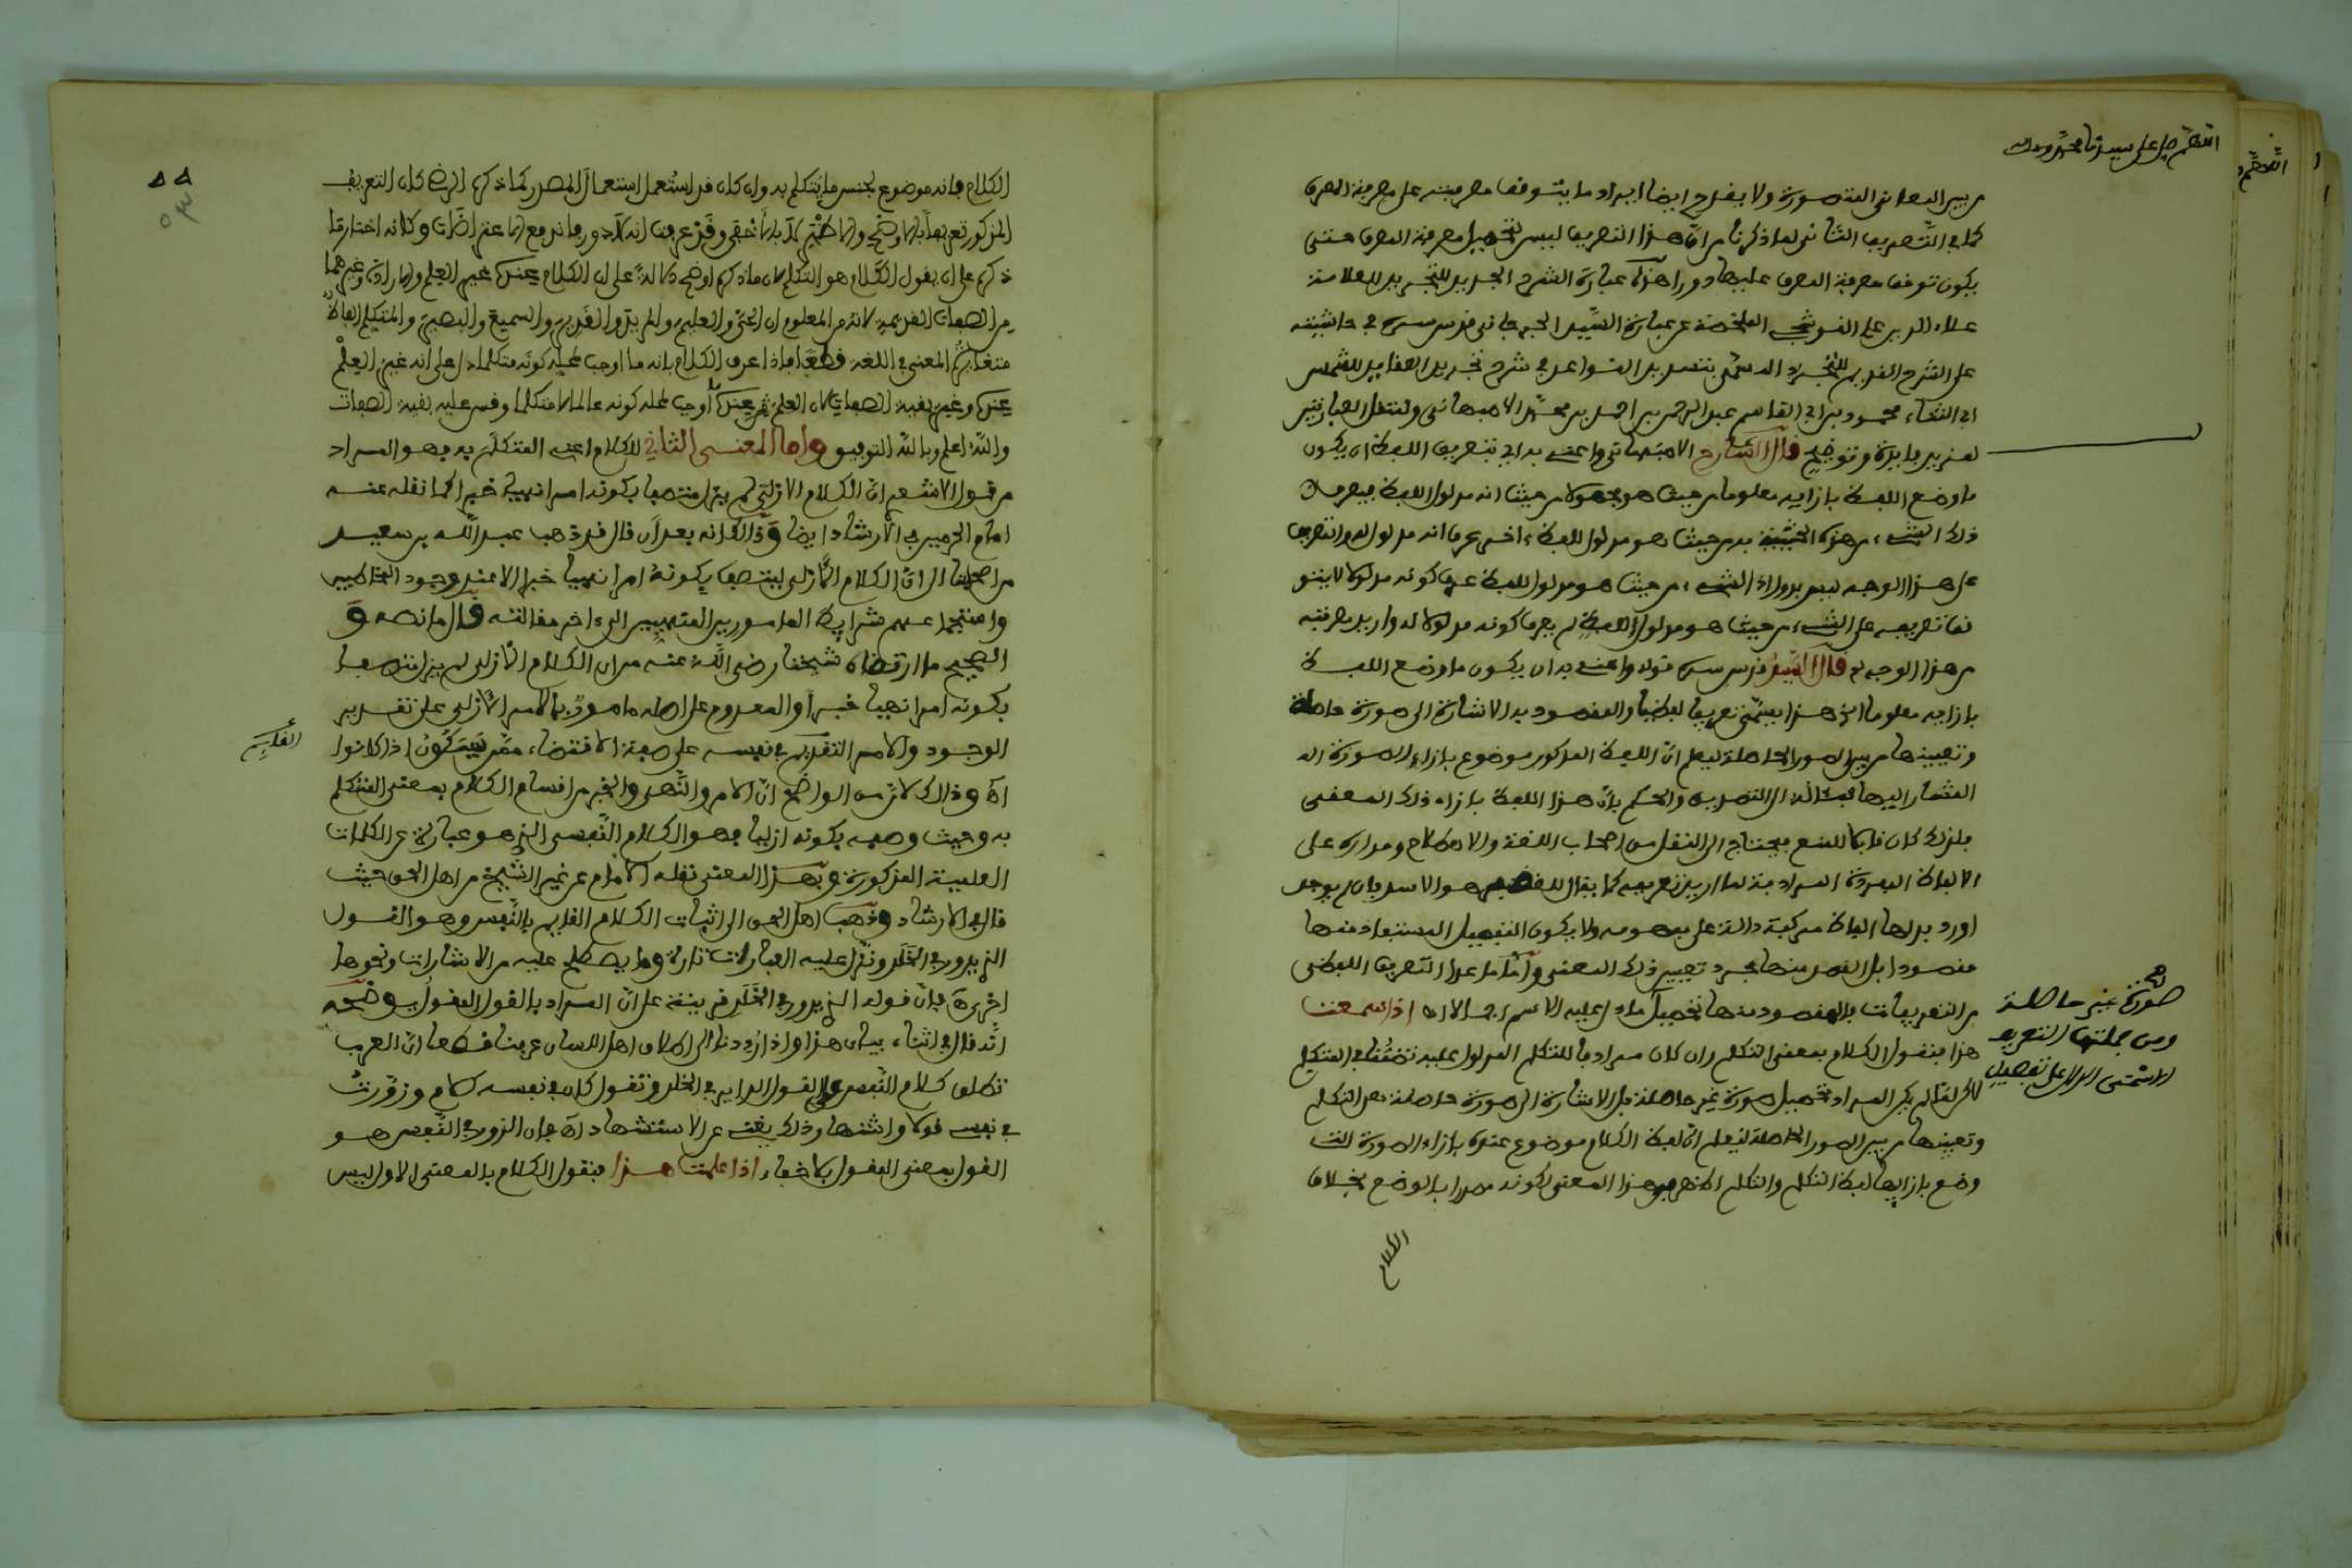 اللهم صل على سيدنا محمد وءاله
من بين المعانى المتصورة ولا يقدح ايضا ايراد ما يتوقف معرفته على معرفة المعرف
كما في التعريف الثانى لما ذكرنا من ان هذا التعريف ليس لتحصيل معرفة المعرف حتى
يكون توقف معرفة المعرف عليها دورا هذه عبارة الشرح الجديد للتجريد للعلامة
علاء الدين على القوشجى الملخصة من عبارة السيد الجرجانى قدس سره في حاشيته
على الشرح القديم للتجريد المسمى بتسديد القواعد في شرح تجريد العقايد للشمس
ابى الثناء محمود بن ابى القاسم عبد الرحمن بن احمد بن محمد الاصبهانى ولننقل العبارتين
لمزيد فايدة وتوضيح قال الشارح الاصبهانى واعنى به اى بتعريف اللفظ ان يكون
ما وضع اللفظ بازايه معلوما من حيث هو مجهولا من حيث انه مدلول اللفظ فيعرف
ذلك الشىء من هذه الحيثية به من حيث هو مدلول للفظ ءاخر عرف انه مدلول له والتعريف
على هذا الوجه ليس بدورى اذ الشىء من حيث هو مدلول للفظ عرف كونه مدلولا لا يتو
قف تعريفه على الشىء من حيث هو مدلول اللفظ لم يعرف كونه مدلولا له واريد معرفته
من هذا الوجه قال السيد قدس سره قوله واعنى به ان يكون ما وضع اللفظ
بازايه معلوما الخ هذا يسمى تعريفا لفظيا والمقصود به الاشارة الى صورة حاصلة
وتعيينها من بين الصور الحاصلة ليعلم ان اللفظ المذكور موضوع بازاء الصورة الم
المشار اليها فمئاله الى التصديق والحكم بان هذا اللفظ بازاء ذلك المعنى
فلذلك كان قابلا للمنع فيحتاج الى النقل من اصحاب اللغة والاصطلاح ومداره على
الالفاظ المفردة المرادفة لما اريد تعريفه كما يقال للغضنفر هو الاسد فان لم يوجد
اورد بدلها الفاظ مركبة دالة على مفهومه ولا يكون التفصيل المستفاد منها
مقصودا بل القصد منها مجرد تعيين ذلك المعنى وأما ما عدا التعريف اللفظى
من التعريفات فالمقصود منها تحصيل ما دل عليه الاسم اجمالا اه اذا سمعت
هذا فنقول الكلام بمعنى التكلم وان كان مرادفا للتكلم المدلول عليه تضمنا في المتكلم
لكن لما لم يكن المراد تحصيل صورة غير حاصلة بل الاشارة الى صورة حاصلة من التكلم
وتعيينها من بين الصور الحاصلة ليعلم ان لفظ الكلام موضوع عنده بازاء الصورة التى
وضع بازايها لفظ التكلم والتكلم اظهر في هذا المعنى لكونه مصدرا بالوضع بخلاف
الكلام
صورة غير حاصلة
ومن جملتها التعريف
الاسمى الدال على تفصيل
الكلام فانه موضوع لجنس ما يتكلم به وان كان قد استعمل استعمال المصدر كما ذكره الرضى كان التعريف
المذكور تعريفا بالاوضح والاظهر لا بالاخفى وقد عرفت انه لا دور فاندفع الاعتراضان وكانه اختار ما
ذكره على ان يقول الكلام هو التكلم لان ما ذكره اوضح دلالة على ان الكلام عندك غير العلم والارادة وغيرهما
من الصفات القديمة لانه من المعلوم ان الحى والعليم والمريد والقدير والسميع والبصير والمتكلم الفاظ
متغايرة المعنى في اللغة قطعا فاذا عرف الكلام بانه ما اوجب لمحله كونه متكلما دل على انه غير العلم
عندك وغير بقية الصفات لان العلم عندك ما أوجب لمحله كونه عالما لا متكلما وقس عليه بقية الصفات
والله اعلم وبالله التوفيق واما المعنى الثاني للكلام اعنى المتكلم به فهو المراد
من قول الاشعرى ان الكلام الازلى لم يزل متصفا بكونه امرا نهيا خبرا كما نقله عنه
امام الحرمين في الارشاد ايضا وذالك انه بعد أن قال قد ذهب عبد الله بن سعيد
من اصحابنا الى ان الكلام الازلى لا يتصف بكونه امرا نهيا خبرا الا عند وجود المخاطبين
واستجماعهم شرايط المامورين المنهيين الى ءاخر مقالته قال ما نصه و
الصحيح ما ارتضاه شيخنا رضى الله عنه من ان الكلام الازلى لم يزل متصفا
بكونه امرا نهيا خبرا والمعدوم على اصله مامور بالامر الازلى على تقدير
الوجود والامر القديم في نفسه على صفة الاقتضاء ممن سيكون اذا كانوا
اه وذالك لان من الواضح ان الامر والنهى والخبر من اقسام الكلام بمعنى المتكلم
به وحيث وصفه بكونه ازليا فهو الكلام النفسى الذى هو عبارة عن الكلمات
العلمية المذكورة وبهذا المعنى نقله الامام عن غير الشيخ من اهل الحق حيث
قال في الارشاد وذهب اهل الحق الى اثبات الكلام القايم بالنفس وهو القول
الذى يدور في الخلد وتدل عليه العبارات تارة وما يصطلح عليه من الاشارات ونحوها
اخرى اه فان قوله الذى يدور في الخلد قرينة على ان المراد بالقول المقول يوضحه
انه قال في اثناء بيان هذا واذا رددنا الى اطلاق اهل اللسان عرفنا قطعا ان العرب
تطلق كلام النفس على القول الداير في الخلد وتقول كان في نفسى كلام وزورت
في نفسى قولا واشتهار ذلك يغنى عن الاستشهاد اه فان المزور في النفس هو
القول بمعنى المقول بلا خفاء اذا علمت هذا فنقول الكلام بالمعنى الاول ليس
القديم